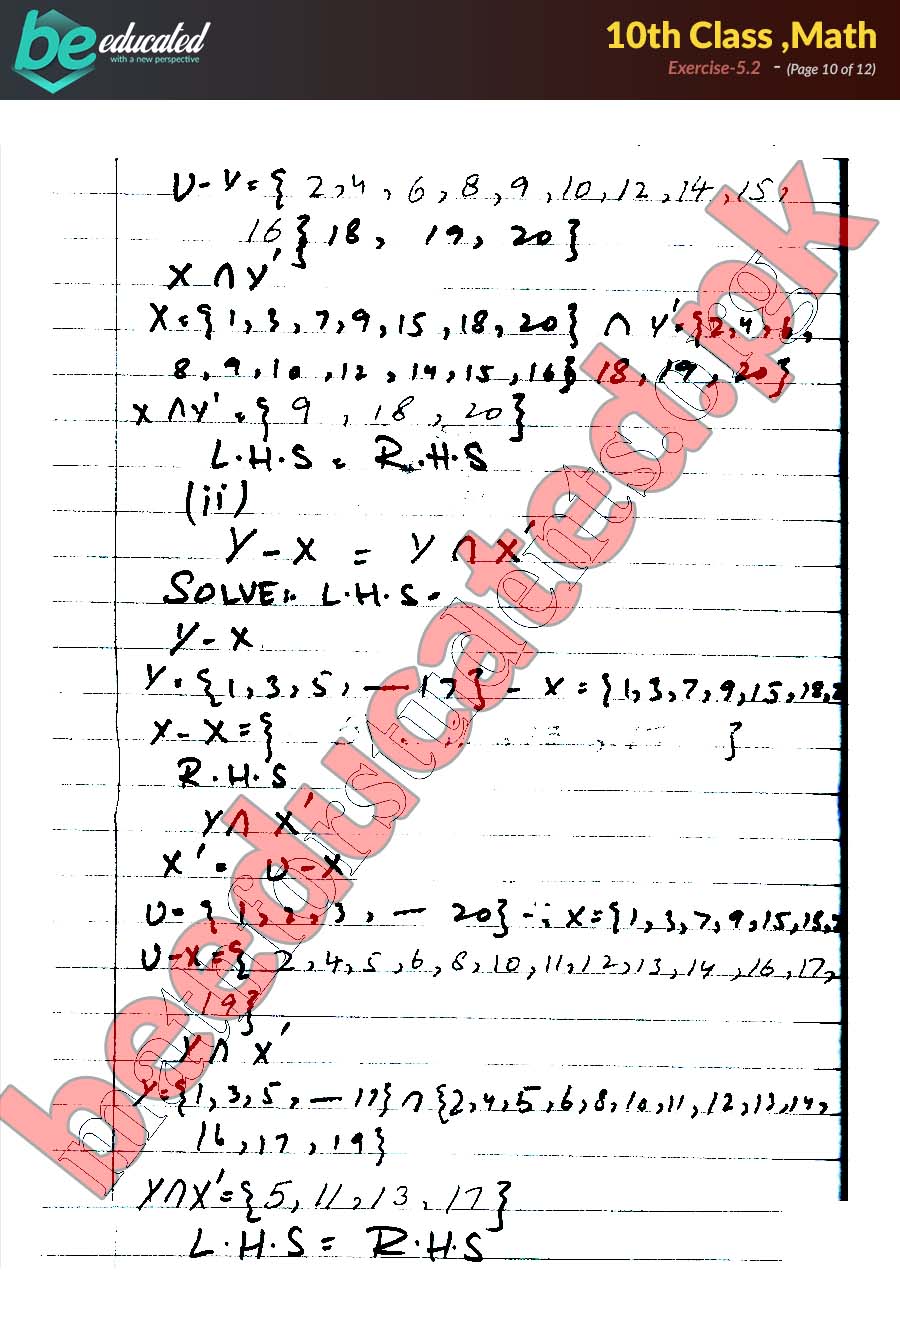 be educated
with a new perspective
10th Class ,Math
Exercise-5.2 - (Page 10 of 12)
U-Y={ 2,4, 6,8,9,10,12,14,15,
16} 18, 19, 20}
X ∩ Y'
X={1,3,7,9,15,18,20} ∩ Y'={2,4,6,
8,9,10,12,14,15,16} 18,19,20}
X∩Y'={ 9 ,18 ,20}
L.H.S = R.H.S
(ii)
Y-X = Y∩X'
SOLVE:. L.H.S-
Y-X
Y={1,3,5, — 17} - X={1,3,7,9,15,18,2
X-X={ }
R.H.S
Y∩ X'
X' = U-X
U={1,2,3, — 20} -: X={1,3,7,9,15,18,2
U-X={ 2,4,5,6,8,10,11,12,13,14,16,17,
19}
Y∩ X'
Y={1,3,5, — 17}∩{2,4,5,6,8,10,11,12,13,14,
16,17,19}
Y∩X'={5,11,13,17}
L.H.S = R.H.S
beeducated.pk